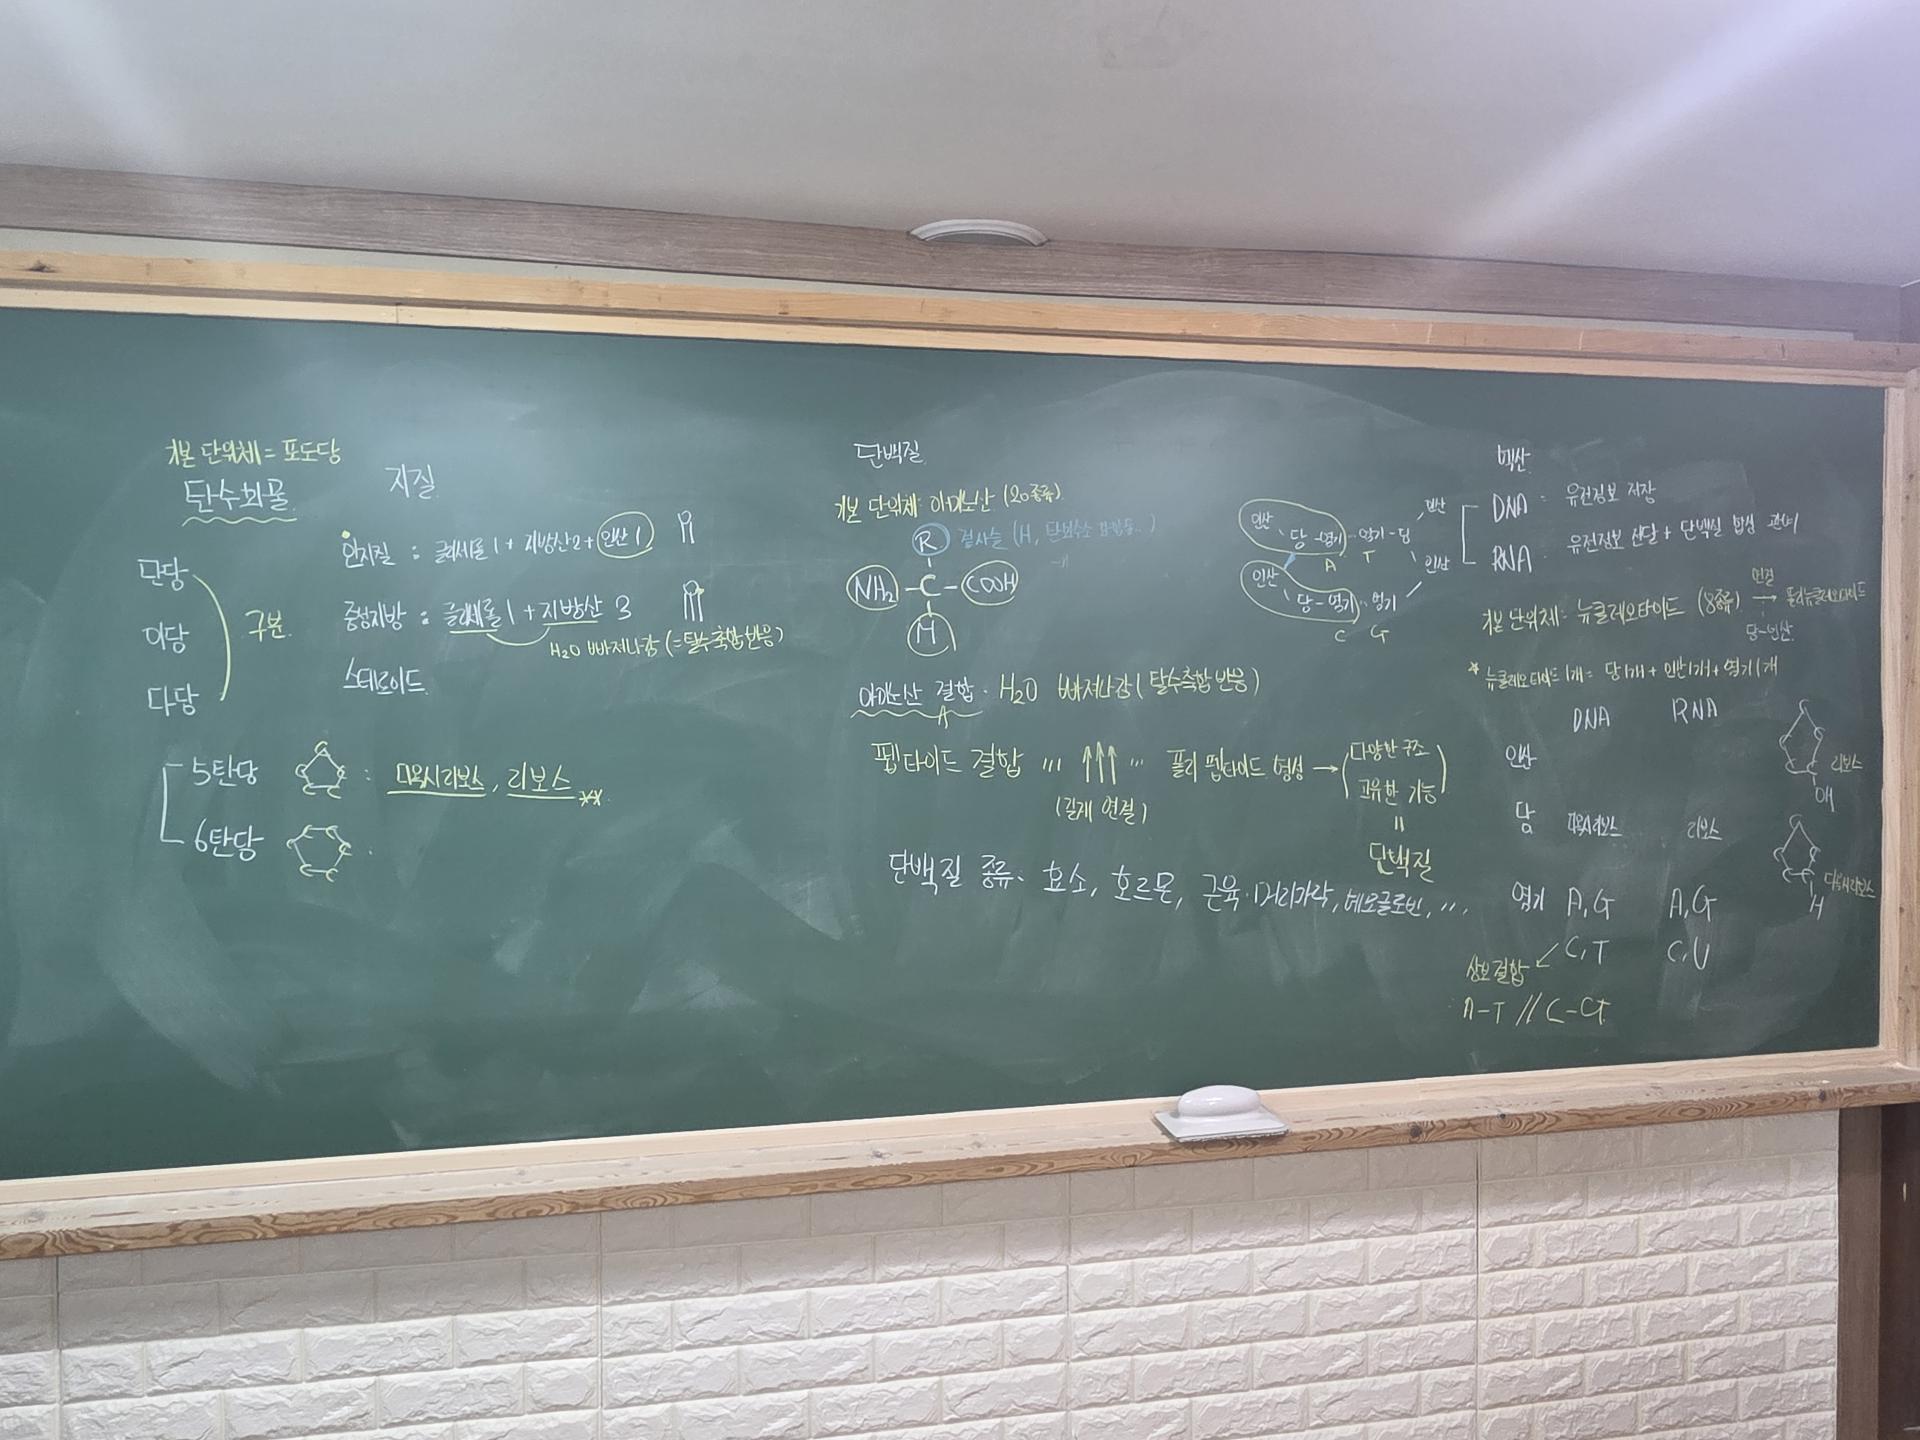 기본 단위체 = 포도당
탄수화물
단당
이당
다당
구분
5탄당 : 디옥시리보스, 리보스
6탄당
지질
인지질 : 글리세롤 1 + 지방산 2 + 인산 1
중성지방 : 글리세롤 1 + 지방산 3
H₂O 빠져나감 (=탈수축합반응)
스테로이드
단백질
기본 단위체: 아미노산 (20종류)
R 곁사슬
NH₂ - C - COOH
H
아미노산 결합. H₂O 빠져나감 (탈수축합반응)
펩타이드 결합 ... ↑↑↑ ... 폴리 펩타이드 형성 → (다양한 구조
고유한 기능)
(길게 연결)
=
단백질
단백질 종류. 효소, 호르몬, 근육·머리카락, 헤모글로빈, ...
인산 당 - 염기 염기 - 당 인산
A T
인산 당 - 염기 염기 인산
C G
핵산
DNA : 유전정보 저장
RNA : 유전정보 전달 + 단백질 합성 관여
기본 단위체: 뉴클레오타이드 (8종류) 연결 → 폴리뉴클레오타이드
당-인산
* 뉴클레오타이드 1개 = 당 1개 + 인산 1개 + 염기 1개
DNA RNA
인산
당 디옥시리보스 리보스
염기 A, G A, G
C, T C, U
상보결합
A-T // C-G
리보스
OH
디옥시리보스
H